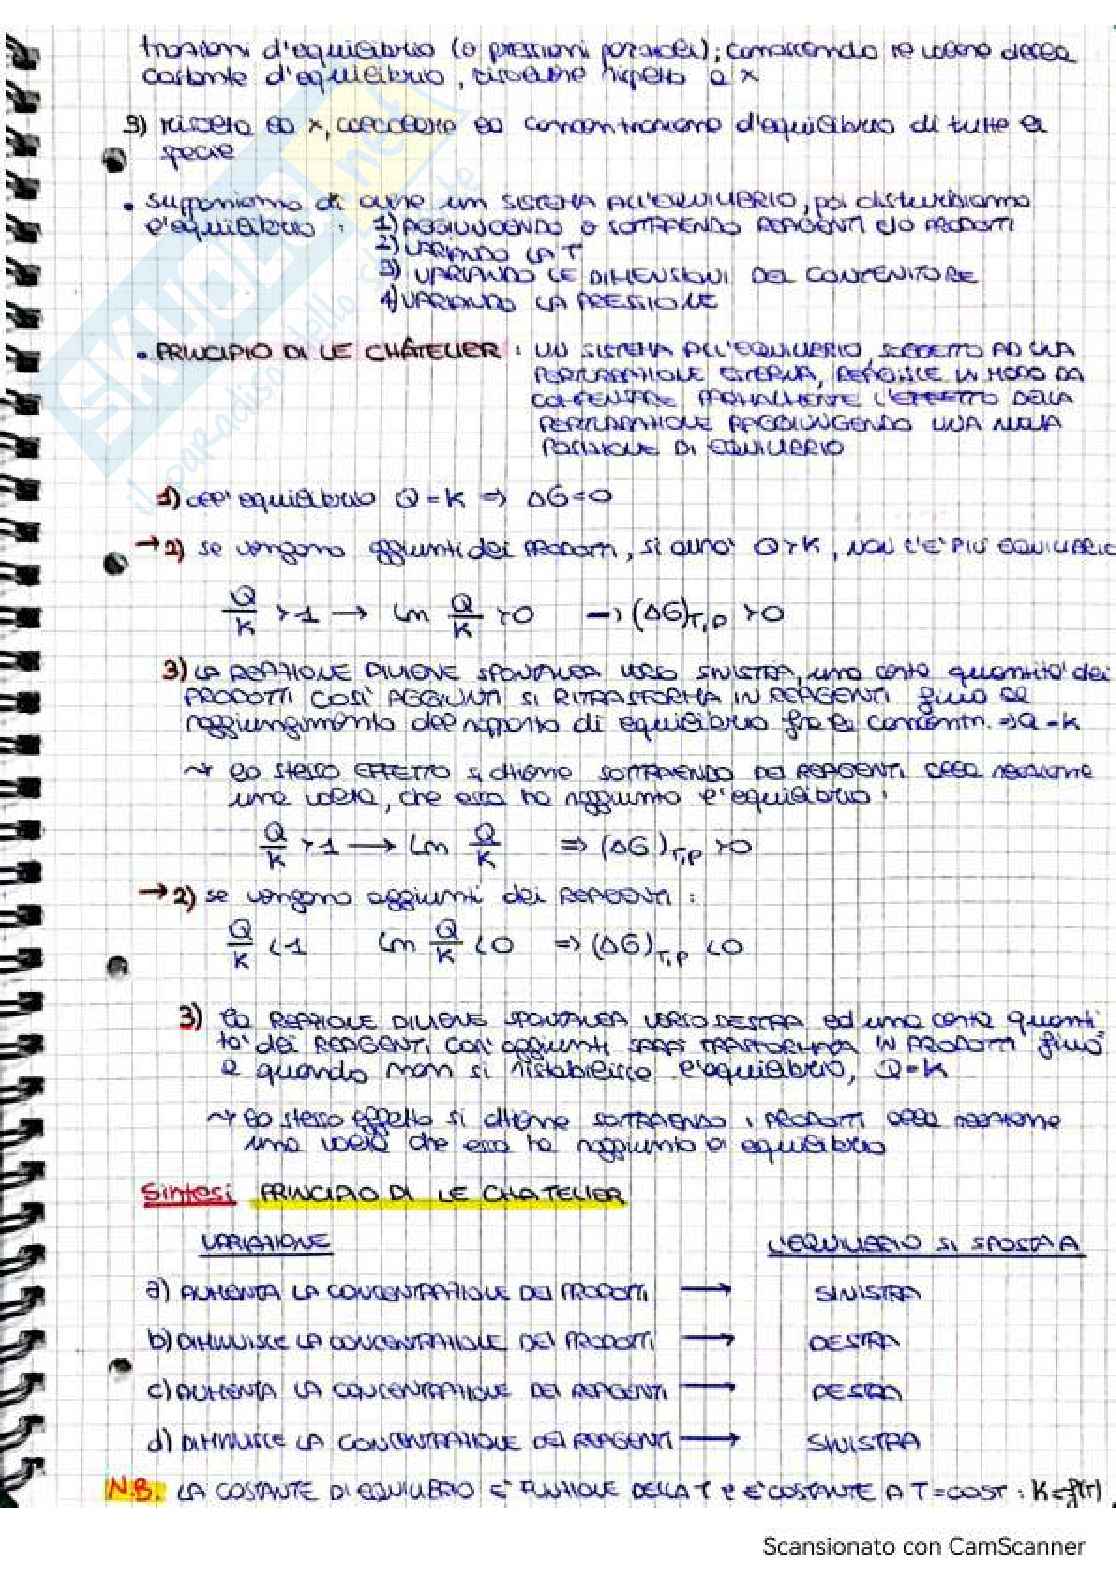 trazioni d'equilibrio (o pressioni parziali); conoscendo il valore della
costante d'equilibrio, risolvere rispetto a x
3) risolto la x, calcolare la concentrazione d'equilibrio di tutte le
specie
• supponiamo di avere un SISTEMA ALL'EQUILIBRIO, poi disturbiamo
l'equilibrio : 1) AGGIUNGENDO O SOTTRAENDO REAGENTI E/O PRODOTTI
2) VARIANDO LA T
3) VARIANDO LE DIMENSIONI DEL CONTENITORE
4) VARIANDO LA PRESSIONE
• PRINCIPIO DI LE CHÂTELIER : UN SISTEMA ALL'EQUILIBRIO, SOGGETTO AD UNA
PERTURBAZIONE ESTERNA, REAGISCE IN MODO DA
COMPENSARE PARZIALMENTE L'EFFETTO DELLA
PERTURBAZIONE RAGGIUNGENDO UNA NUOVA
POSIZIONE DI EQUILIBRIO
1) all'equilibrio Q = K ⇒ ΔG = 0
→ 2) se vengono aggiunti dei PRODOTTI, si avrà Q > K, NON C'È PIÙ EQUILIBRIO
Q/K > 1 → ln Q/K > 0 → (ΔG)T,P > 0
3) LA REAZIONE DIVIENE SPONTANEA VERSO SINISTRA, una certa quantità dei
PRODOTTI COSÌ AGGIUNTI SI RITRASFORMA IN REAGENTI fino al
raggiungimento del rapporto di equilibrio fra le concentr. ⇒ Q = K
↝ lo stesso EFFETTO si ottiene SOTTRAENDO DEI REAGENTI alla reazione
una volta, che essa ha raggiunto l'equilibrio:
Q/K > 1 → ln Q/K ⇒ (ΔG)T,P > 0
→ 2) se vengono aggiunti dei REAGENTI :
Q/K < 1 ln Q/K < 0 ⇒ (ΔG)T,P < 0
3) la REAZIONE DIVIENE SPONTANEA VERSO DESTRA ed una certa quanti
tà dei REAGENTI così aggiunti SARÀ TRASFORMATA IN PRODOTTI fino
a quando non si ristabilisce l'equilibrio, Q = K
↝ lo stesso effetto si ottiene SOTTRAENDO i PRODOTTI alla reazione
una volta che essa ha raggiunto l'equilibrio
Sintesi PRINCIPIO DI LE CHATELIER
VARIAZIONE L'EQUILIBRIO SI SPOSTA A
a) AUMENTA LA CONCENTRAZIONE DEI PRODOTTI → SINISTRA
b) DIMINUISCE LA CONCENTRAZIONE DEI PRODOTTI → DESTRA
c) AUMENTA LA CONCENTRAZIONE DEI REAGENTI → DESTRA
d) DIMINUISCE LA CONCENTRAZIONE DEI REAGENTI → SINISTRA
N.B. LA COSTANTE DI EQUILIBRIO È FUNZIONE DELLA T e È COSTANTE A T = COST : K = f(T)
Scansionato con CamScanner